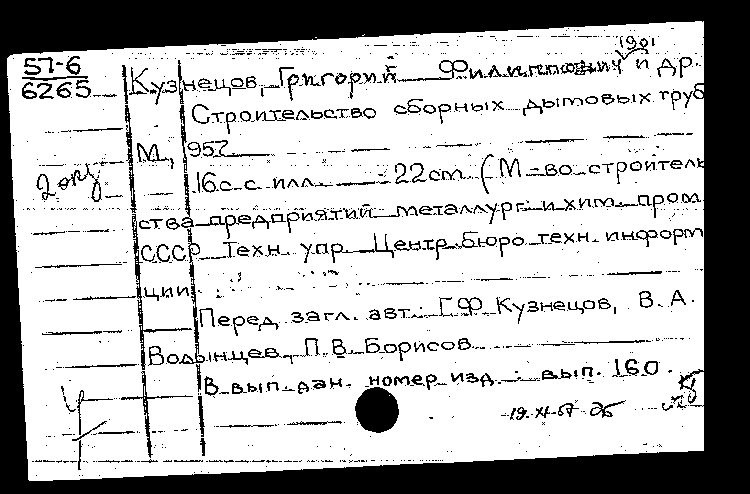 57-6
6265
1901
Кузнецов, Григорий Филиппович и др.
Строительство сборных дымовых труб
М, 1957
16с. с илл. 22см (М-во строитель
ства предприятий металлург. и хим. пром.
СССР Техн. упр. Центр. бюро техн. информ
ции
Перед загл. авт.: Г.Ф Кузнецов, В.А.
Водынцев, П.В. Борисов
В вып. дан. номер изд.: вып. 160.
19.XI-57